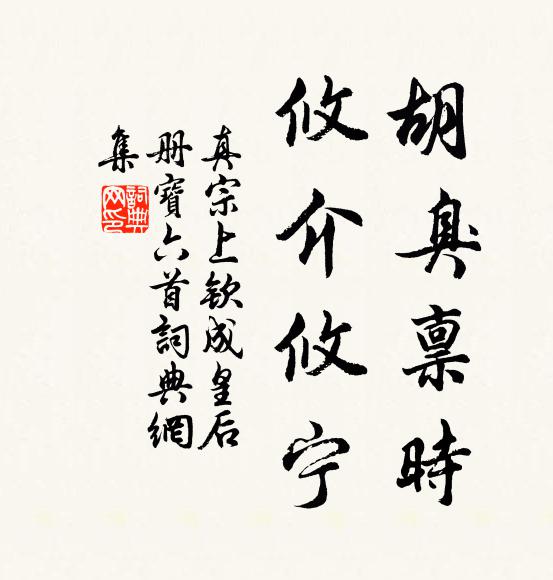 胡臭稟時
攸介攸宁
真宗上欽成皇后
冊寶六首詞典網
集
詞典
网印